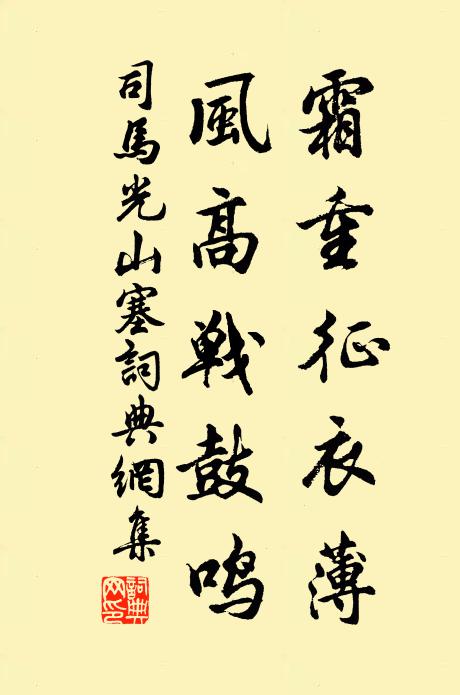 霜重征衣薄
風高戰鼓鳴
司馬光山塞詞典網集
詞典
网印